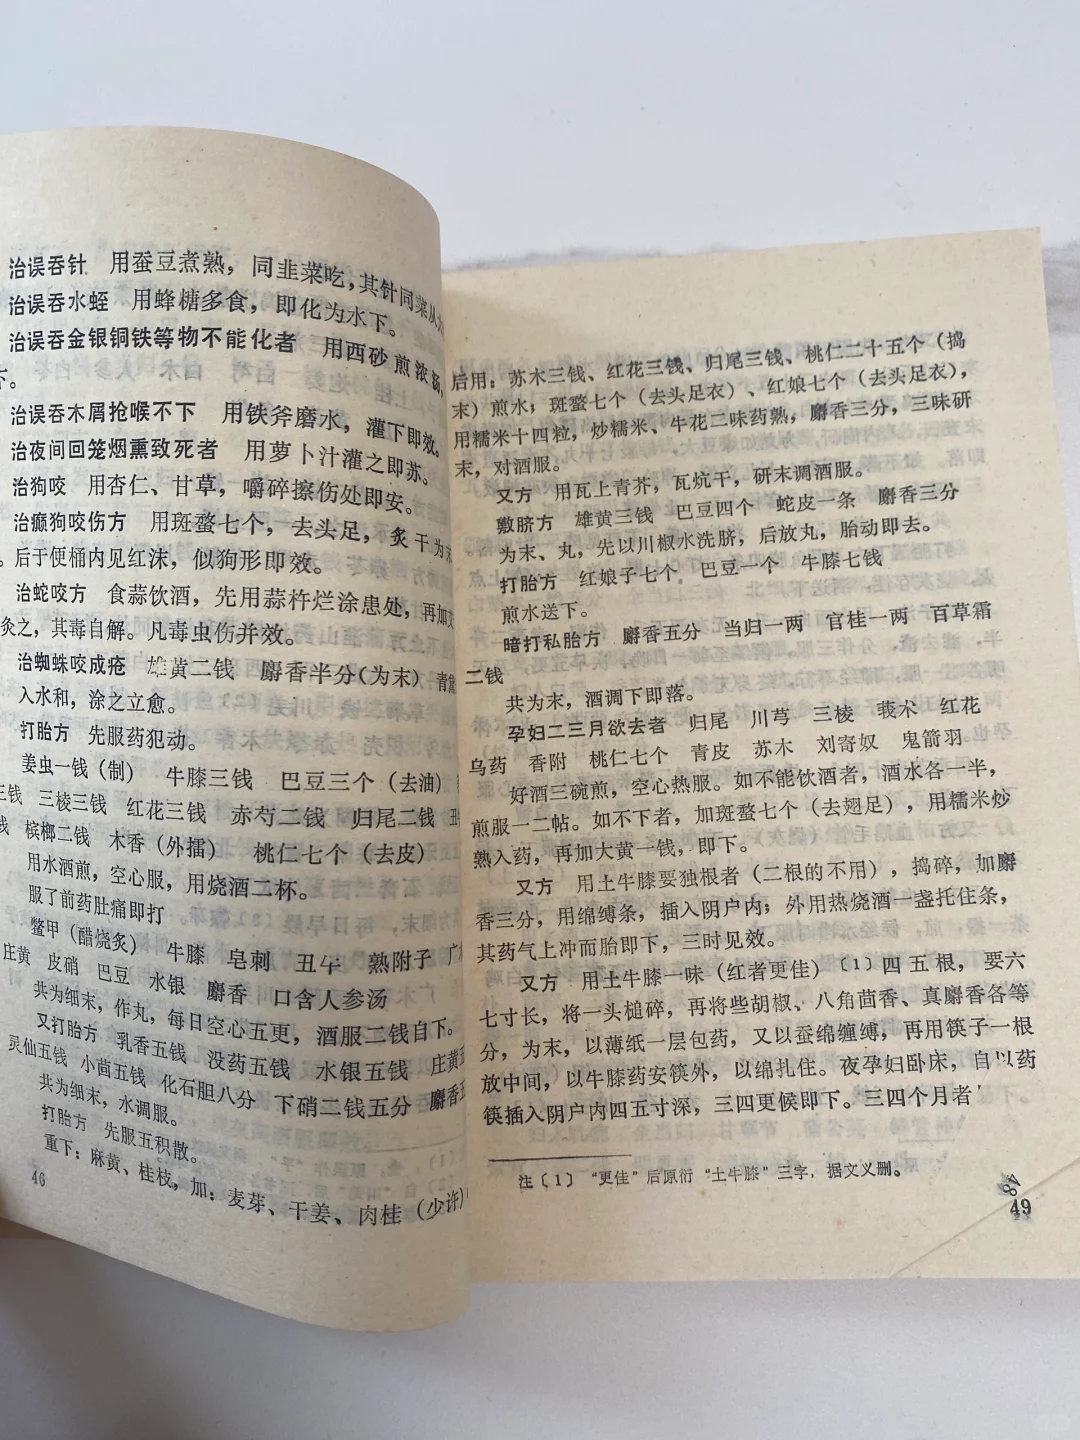 治误吞针　用蚕豆煮熟，同韭菜吃，其针同菜从
治误吞水蛭　用蜂糖多食，即化为水下。
治误吞金银铜铁等物不能化者　用西砂煎浓汤，
下。
治误吞木屑抢喉不下　用铁斧磨水，灌下即效。
治夜间回笼烟熏致死者　用萝卜汁灌之即苏。
治狗咬　用杏仁、甘草，嚼碎擦伤处即安。
治癫狗咬伤方　用斑蝥七个，去头足，炙干为末
。后于便桶内见红沫，似狗形即效。
治蛇咬方　食蒜饮酒，先用蒜杵烂涂患处，再加艾
灸之，其毒自解。凡毒虫伤并效。
治蜘蛛咬成疮　雄黄二钱　麝香半分（为末）青黛
入水和，涂之立愈。
打胎方　先服药犯动。
姜虫一钱（制）　牛膝三钱　巴豆三个（去油）
三钱　三棱三钱　红花三钱　赤芍二钱　归尾二钱
钱　槟榔二钱　木香（外擂）　桃仁七个（去皮）
用水酒煎，空心服，用烧酒二杯。
服了前药肚痛即打
鳖甲（醋烧炙）　牛膝　皂刺　丑牛　熟附子　广
庄黄　皮硝　巴豆　水银　麝香　口含人参汤
共为细末，作丸，每日空心五更，酒服二钱自下。
又打胎方　乳香五钱　没药五钱　水银五钱　庄黄五
灵仙五钱　小茴五钱　化石胆八分　下硝二钱五分　麝香五
共为细末，水调服。
打胎方　先服五积散。
重下：麻黄、桂枝，加：麦芽、干姜、肉桂（少许）
46
后用：苏木三钱、红花三钱、归尾三钱、桃仁二十五个（捣
末）煎水；斑蝥七个（去头足衣）、红娘七个（去头足衣），
用糯米十四粒，炒糯米、牛花二味药熟，麝香三分，三味研
末，对酒服。
又方　用瓦上青芥，瓦炕干，研末调酒服。
敷脐方　雄黄三钱　巴豆四个　蛇皮一条　麝香三分
为末、丸，先以川椒水洗脐，后放丸，胎动即去。
打胎方　红娘子七个　巴豆一个　牛膝七钱
煎水送下。
暗打私胎方　麝香五分　当归一两　官桂一两　百草霜
二钱
共为末，酒调下即落。
孕妇二三月欲去者　归尾　川芎　三棱　莪术　红花
乌药　香附　桃仁七个　青皮　苏木　刘寄奴　鬼箭羽
好酒三碗煎，空心热服。如不能饮酒者，酒水各一半，
煎服一二帖。如不下者，加斑蝥七个（去翅足），用糯米炒
熟入药，再加大黄一钱，即下。
又方　用土牛膝要独根者（二根的不用），捣碎，加麝
香三分，用绵缚条，插入阴户内；外用热烧酒一盏托住条，
其药气上冲而胎即下，三时见效。
又方　用土牛膝一味（红者更佳）〔1〕四五根，要六
七寸长，将一头槌碎，再将些胡椒、八角茴香、真麝香各等
分，为末，以薄纸一层包药，又以蚕绵缠缚，再用筷子一根
放中间，以牛膝药安筷外，以绵扎住。夜孕妇卧床，自以药
筷插入阴户内四五寸深，三四更候即下。三四个月者
注〔1〕“更佳”后原衍“土牛膝”三字，据文义删。
48
49